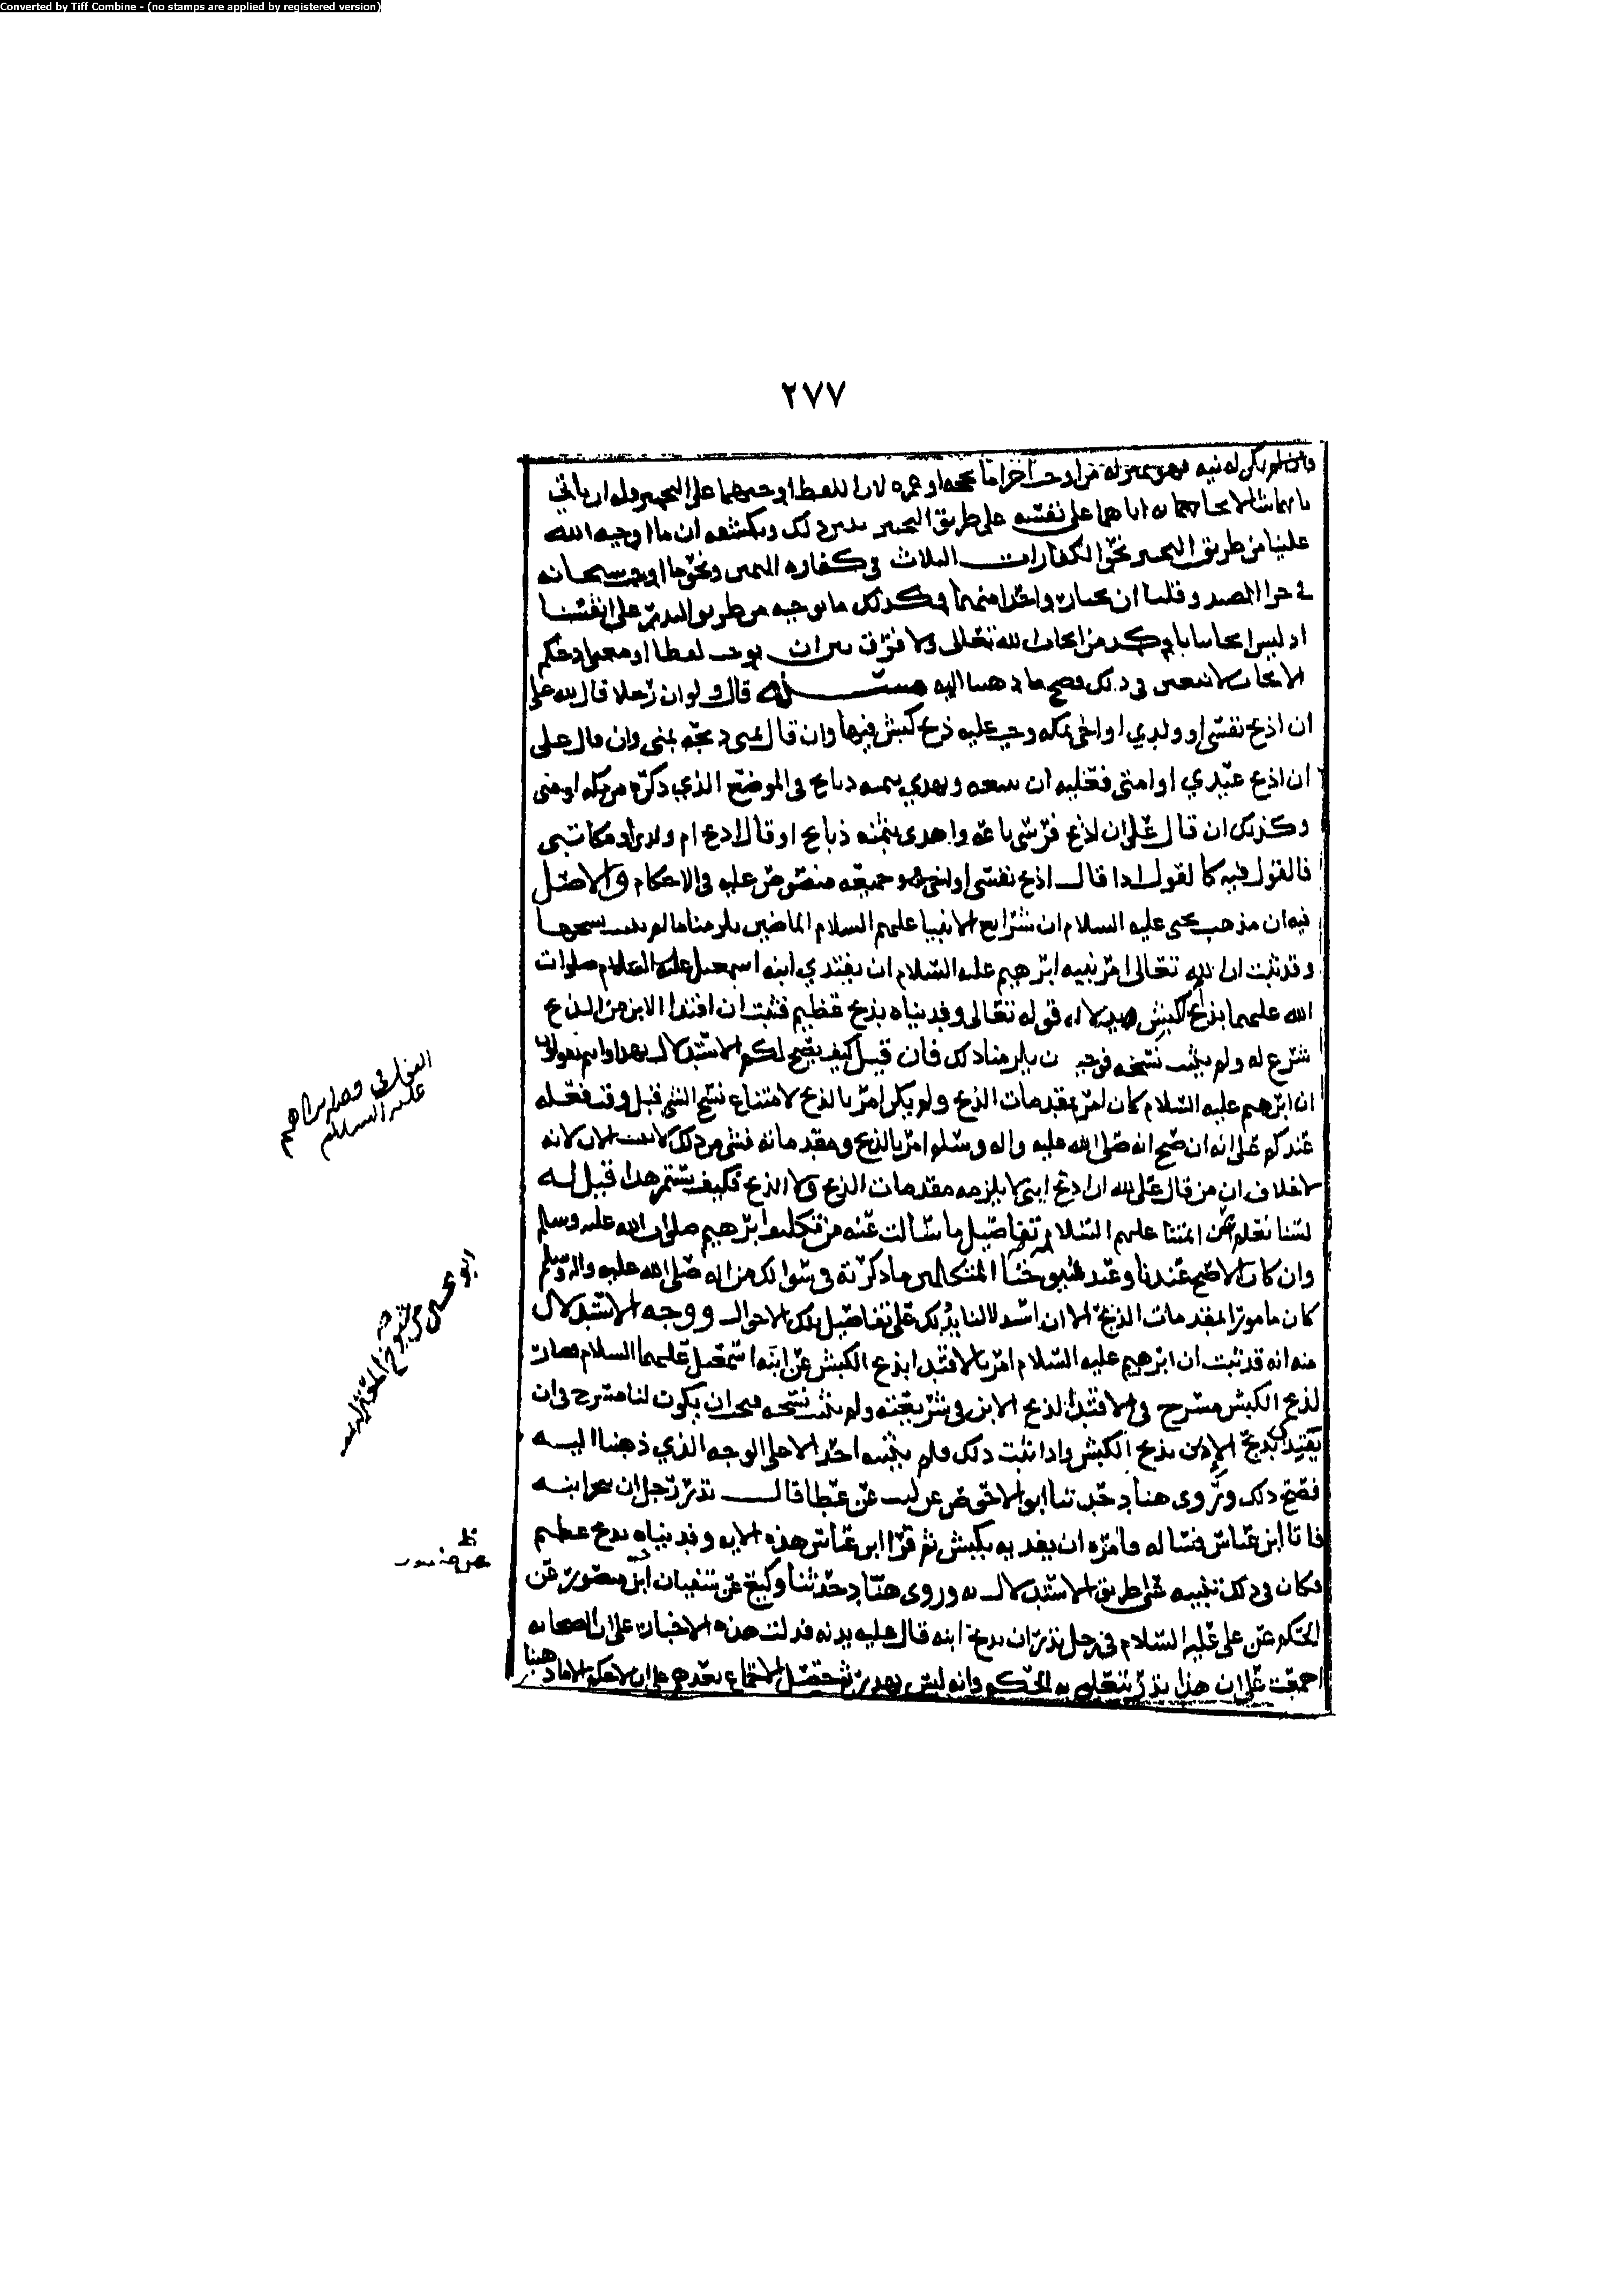 Converted by Tiff Combine - (no stamps are applied by registered version)
٢٧٧
وان لم يكن له نيه فهو بمنزله من اوجب احراما بحجه او عمره لان اللفظ اوجبهما على التخيير وله ان ياتي
بايهما شا لايجابه اياهما على نفسه على طريق التخيير ذلك ان ما اوجبه الله
علينا من طريق التخيير نحو الكفارات الثلاث في كفاره اليمين ونحو ما اوجب سبحانه
في جزا الصيد وقلنا ان نختار واحدا منهما وكذلك ما نوجبه من طريق النذر على انفسنا
اذ ليس ايجابنا باوكد من ايجاب الله تعالى ولا فرق بين ان يوجب لفظا او معنى اذ حكم
الايجاب لا في ذلك فصح ما ذهبنا اليه مسئله قال ولو ان رجلا قال لله علي
ان اذبح نفسي او ولدي او اخي بمكه وجب عليه ذبح كبش فيها وان قال بمنى ذبحه بمنى وان قال علي
ان اذبح عبدي او امتي فعليه ان يبيعه ويهدي بثمنه ذبايح في الموضع الذي ذكره من مكه او منى
وكذلك ان قال علي ان اذبح فرسي باعه واهدى بثمنه ذبايح او قال اذبح ام ولدي او مكاتبي
فالقول فيه كالقول اذا قال اذبح نفسي او اخي وجميعه منصوص عليه في الاحكام والاصل
فيه ان مذهب يحيى عليه السلام ان شرايع الانبيا عليهم السلام الماضين يلزمنا ما لم يثبت نسخها
وقد ثبت ان الله تعالى امر نبيه ابرهيم عليه السلام ان يفتدي ابنه اسمعيل عليه السلام صلوات
الله عليهما بذبح كبش قوله تعالى وفديناه بذبح عظيم فثبت ان افتدا الابن من الذبح
شرع له ولم يثبت نسخه فوجب ان يلزمنا ذلك فان قيل كيف يصح لكم الاستدلال بهذا وانتم تقولون
ان ابرهيم عليه السلام كان امر بمقدمات الذبح ولم يكن امر بالذبح لامتناع نسخ الشي قبل وقت فعله
عندكم على انه ان صح انه صلى الله عليه واله وسلم امر بالذبح ومقدماته فشي من ذلك لا يثبت الان لانه
لا خلاف ان من قال علي لله ان اذبح ابني لا يلزمه مقدمات الذبح ولا الذبح فكيف يستمر هذا قيل له
لسنا نعلم عن ائمتنا عليهم السلام تفاصيل ما سالت عنه من تكليف ابرهيم صلى الله عليه وسلم
وان كان الاصح عندنا وعند شيوخنا المتكلمين ما ذكرته في سوالك من انه صلى الله عليه واله وسلم
كان مامورا بمقدمات الذبح الا ان استدلالنا بذلك على تفاصيل تلك الاحوال ووجه الاستدلال
منه انه قد ثبت ان ابرهيم عليه السلام امر بالافتدا بذبح الكبش عن ابنه اسمعيل عليهما السلام فصار
لذبح الكبش مسرح في الافتدا لذبح الابن في شريعته ولم يثبت نسخه فيجب ان يكون لنا مسرح في ان
يفتدا بذبح الابن بذبح الكبش واذا ثبت ذلك فلم يثبته احد الا على الوجه الذي ذهبنا اليه
فصح ذلك وروى هناد حدثنا ابو الاحوص عن ليث عن عطا قال نذر رجل ان ينحر ابنه
فاتا ابن عباس فساله فامره ان يفديه بكبش ثم قرا ابن عباس هذه الايه وفديناه بذبح عظيم
فكان في ذلك تنبيه على طريق الاستدلال به وروى هناد حدثنا وكيع عن سفيان ابن منصور عن
الحكم عن علي عليه السلام في رجل نذر ان يذبح ابنه قال عليه بدنه فدلت هذه الاخبار على ان الصحابه
اجمعت على ان هذا نذر يتعلق به الحكم وانه ليس بهدر ثم حصل الاجماع بعدهم على ان لا حكم الا ما ذهبنا
عليه السلام